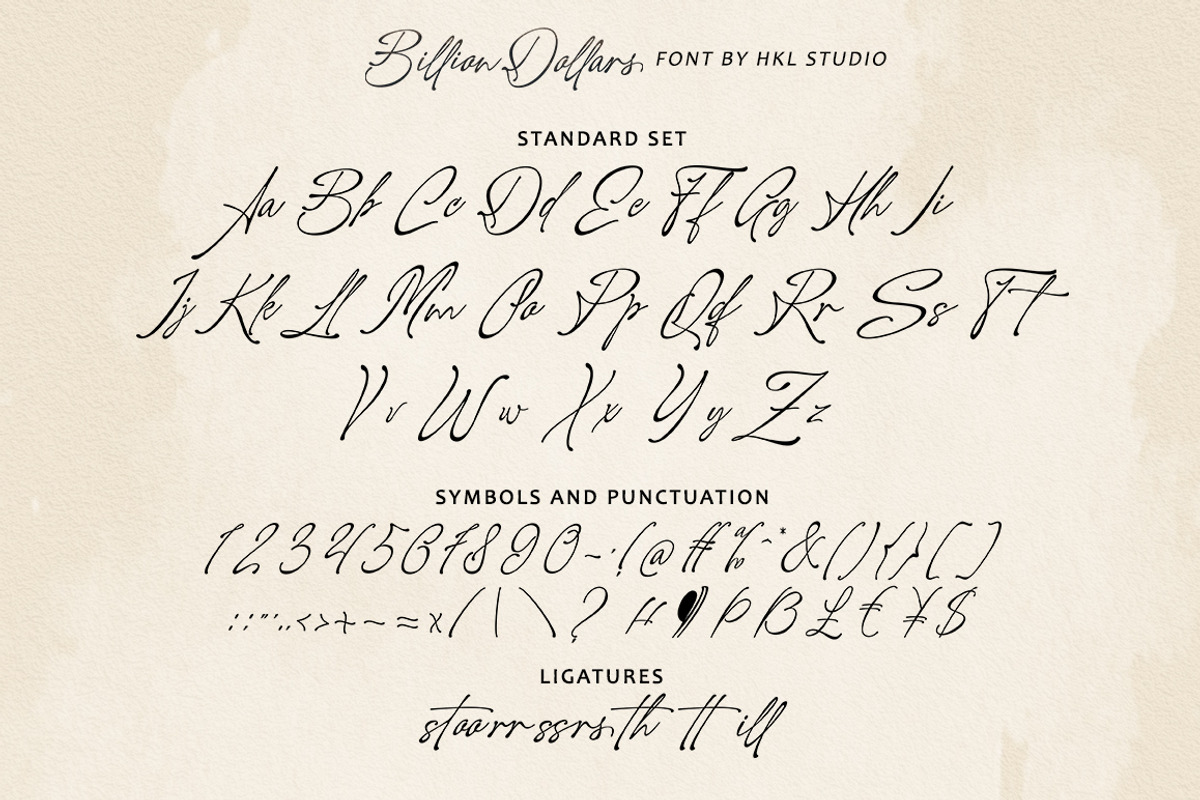 Billion Dollars FONT BY HKL STUDIO
STANDARD SET
Aa Bb Cc Dd Ee Ff Gg Hh Ii
Jj Kk Ll Mm Oo Pp Qq Rr Ss Tt
Vv Ww Xx Yy Zz
SYMBOLS AND PUNCTUATION
1 2 3 4 5 6 7 8 9 0 - · ! @ # % ^ * & ( ) { } [ ]
: ; " ' . , < > + ~ ≈ x / | \ ? ¶ Þ ß £ € ¥ $
LIGATURES
st oo rr ss rs th tt ill